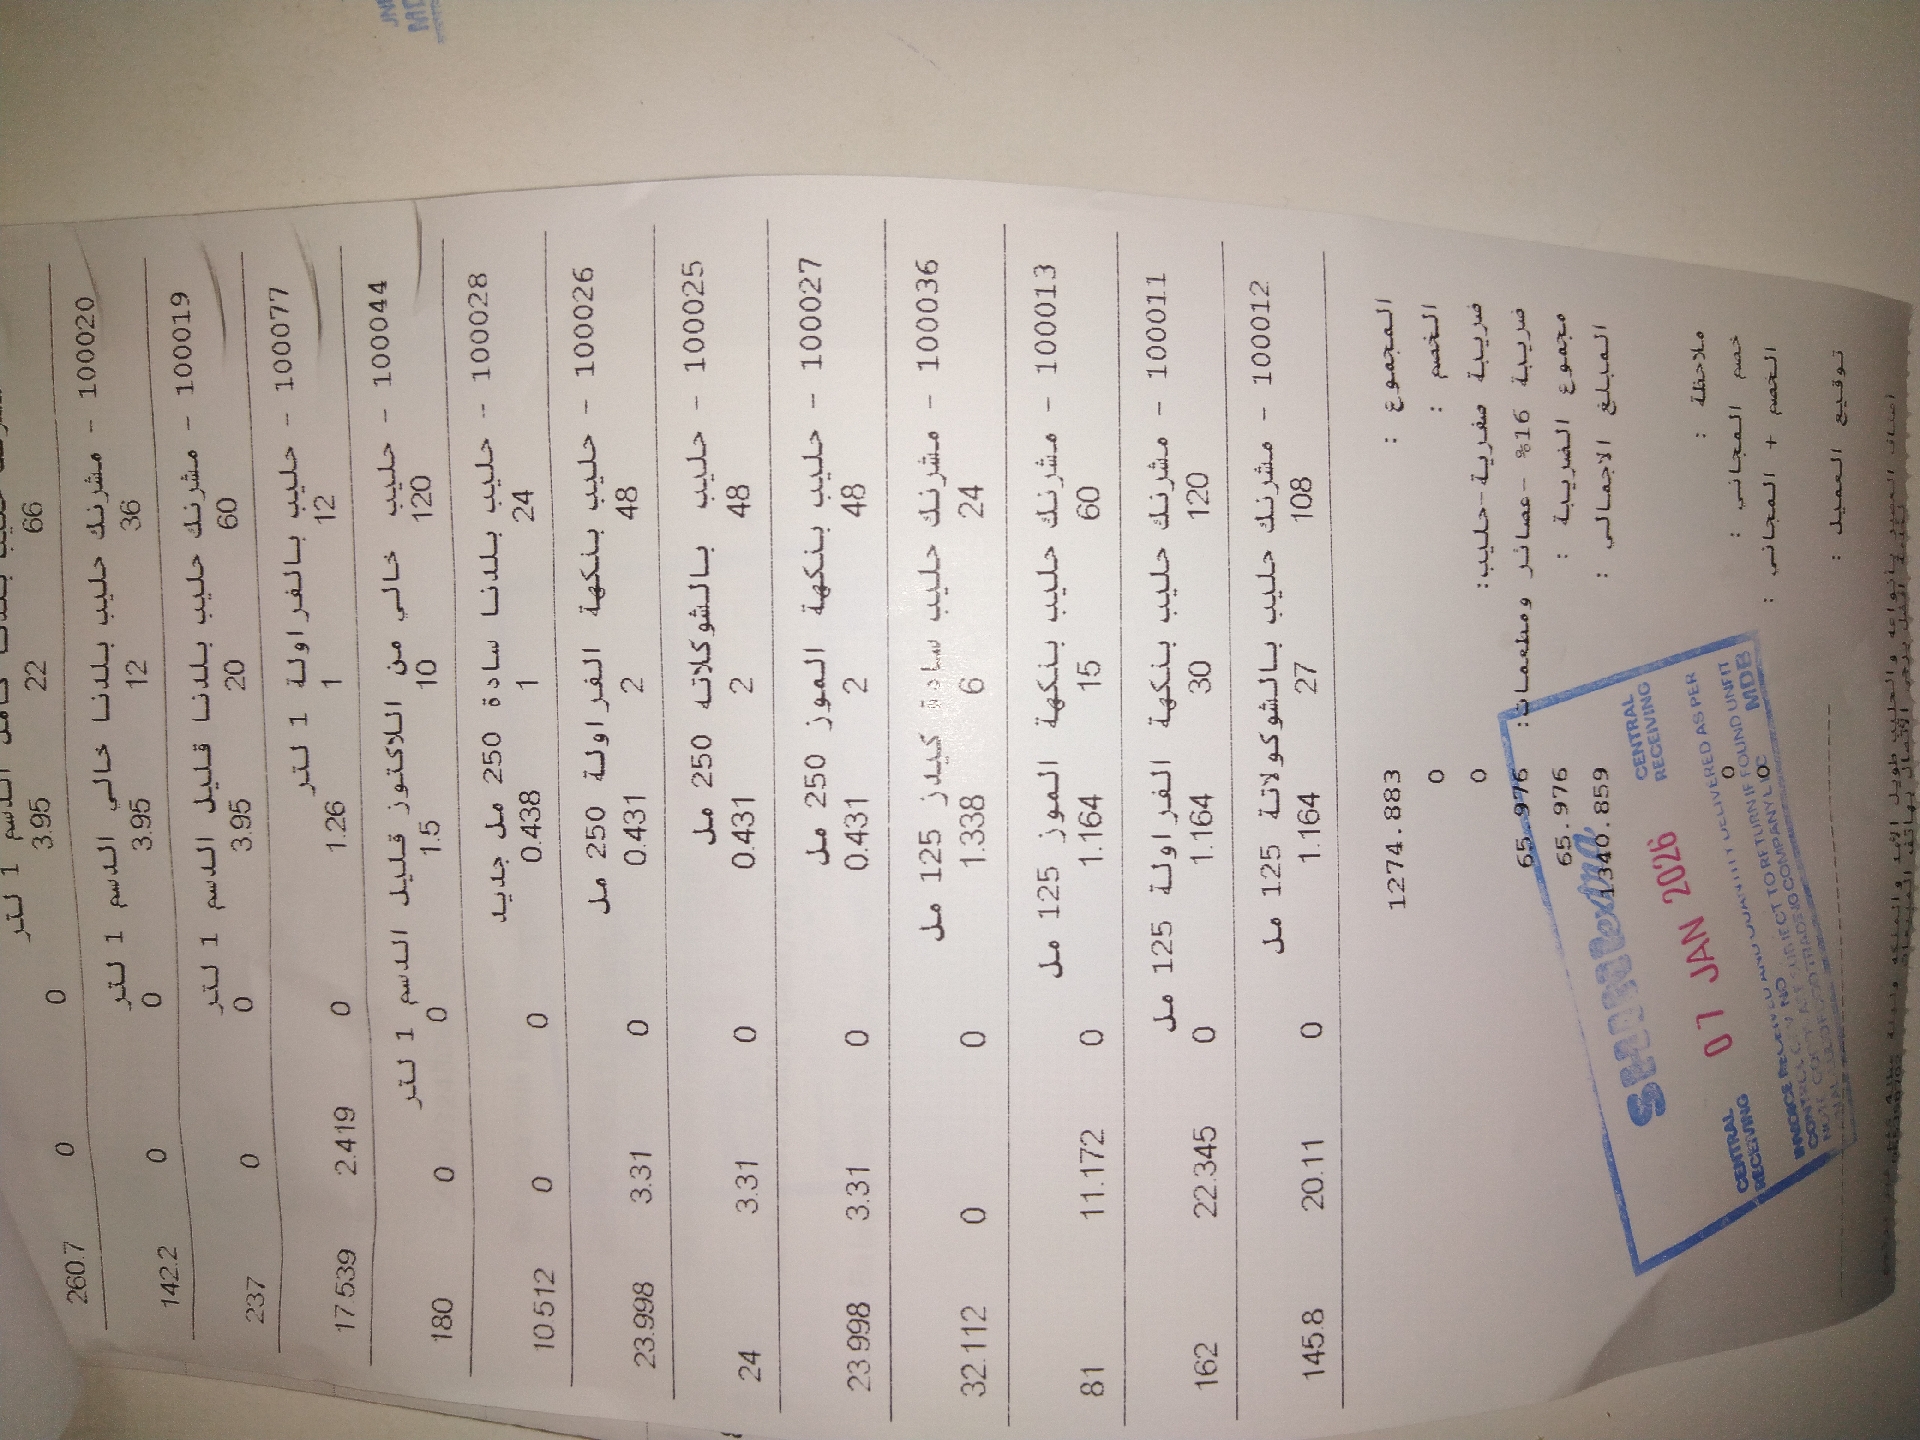 حليب بلدنا كامل الدسم 1 لتر
66 22 3.95 0 0 260.7
100020 - مشرنك حليب بلدنا خالي الدسم 1 لتر
36 12 3.95 0 0 142.2
100019 - مشرنك حليب بلدنا قليل الدسم 1 لتر
60 20 3.95 0 0 237
100077 - حليب بالفراولة 1 لتر
12 1 1.26 0 2.419 17.539
100044 - حليب خالي من اللاكتوز قليل الدسم 1 لتر
120 10 1.5 0 0 180
100028 - حليب بلدنا سادة 250 مل جديد
24 1 0.438 0 0 10.512
100026 - حليب بنكهة الفراولة 250 مل
48 2 0.431 0 3.31 23.998
100025 - حليب بالشوكلاته 250 مل
48 2 0.431 0 3.31 24
100027 - حليب بنكهة الموز 250 مل
48 2 0.431 0 3.31 23.998
100036 - مشرنك حليب سادة كيدز 125 مل
24 6 1.338 0 0 32.112
100013 - مشرنك حليب بنكهة الموز 125 مل
60 15 1.164 0 11.172 81
100011 - مشرنك حليب بنكهة الفراولة 125 مل
120 30 1.164 0 22.345 162
100012 - مشرنك حليب بالشوكولاتة 125 مل
108 27 1.164 0 20.11 145.8
المجموع : 1274.883
الخصم : 0
ضريبة صفرية-حليب: 0
ضريبة 16% -عصائر ومطعمات: 65.976
مجموع الضريبة : 65.976
المبلغ الاجمالي : 1340.859
ملاحظة :
خصم المجاني : 0
الخصم + المجاني : 0
توقيع العميل :
CENTRAL RECEIVING
07 JAN 2026
CENTRAL RECEIVING
MDB